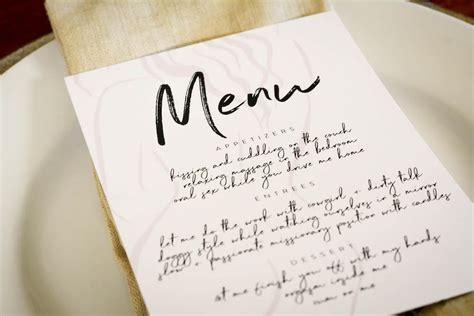 Menu
APPETIZERS
kissing and cuddling on the couch
relaxing massage in the bedroom
oral sex while you drive me home
ENTREES
let me do the work with cowgirl + dirty talk
doggy style while watching ourselves in a mirror
slow + passionate missionary position with candles
DESSERT
let me finish you off with my hands
orgasm inside me
cum on me